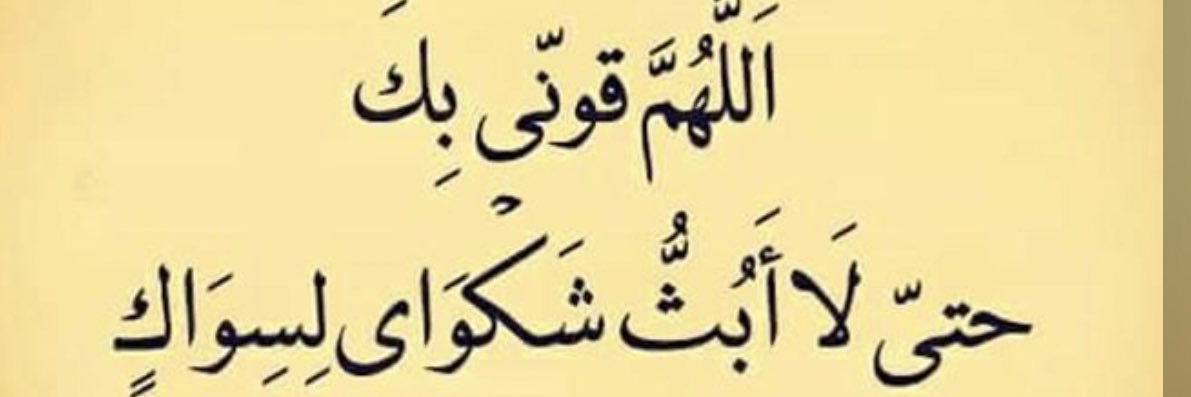 اَللّٰهُمَّ قونّى بِكَ
حتىّ لَا أَبُثُّ شَكوَاى لِسِوَاكٍ